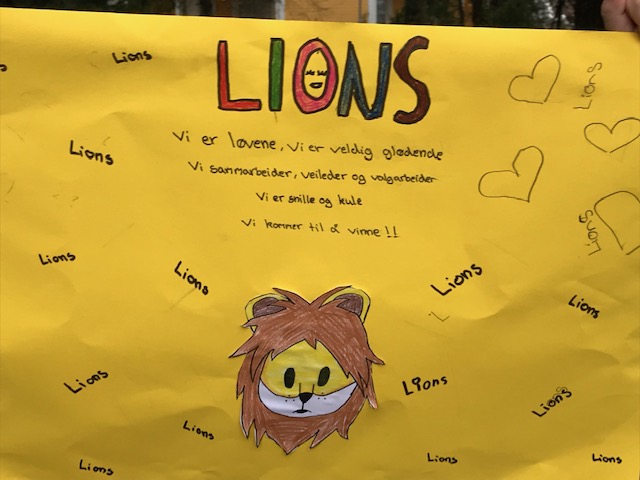 LIONS
Lions
Lions
Vi er løvene, Vi er veldig glødende
Lions
Vi sammarbeider, veileder og valgarbeider
Vi er snille og kule
Lions
Vi kommer til å vinne!!
Lions
Lions
Lions
Lions
Lions
Lions
Lions
Lions
Lions
Lions
Lions